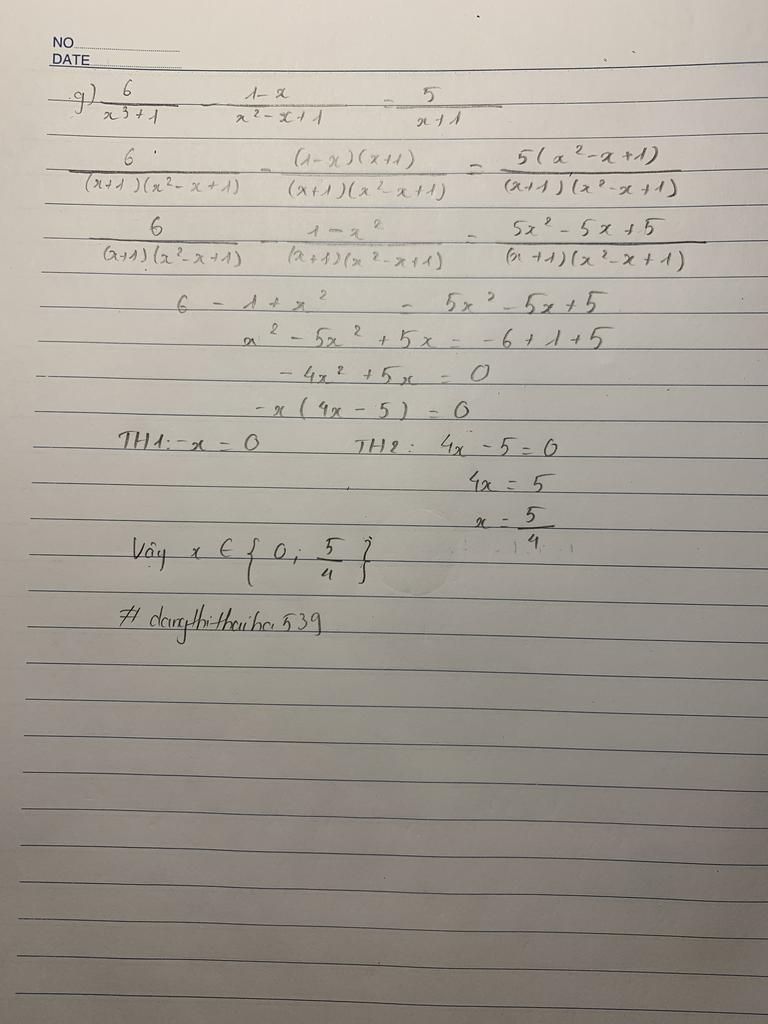 NO
DATE
g) 6/(x³+1) - (1-x)/(x²-x+1) = 5/(x+1)
6/((x+1)(x²-x+1)) - ((1-x)(x+1))/((x+1)(x²-x+1)) = 5(x²-x+1)/((x+1)(x²-x+1))
6/((x+1)(x²-x+1)) - (1-x²)/((x+1)(x²-x+1)) = (5x²-5x+5)/((x+1)(x²-x+1))
6 - 1 + x² = 5x² - 5x + 5
x² - 5x² + 5x = -6 + 1 + 5
-4x² + 5x = 0
-x(4x - 5) = 0
TH1: -x = 0 TH2: 4x - 5 = 0
4x = 5
x = 5/4
Vậy x ∈ {0; 5/4}
# dangthithaiha539